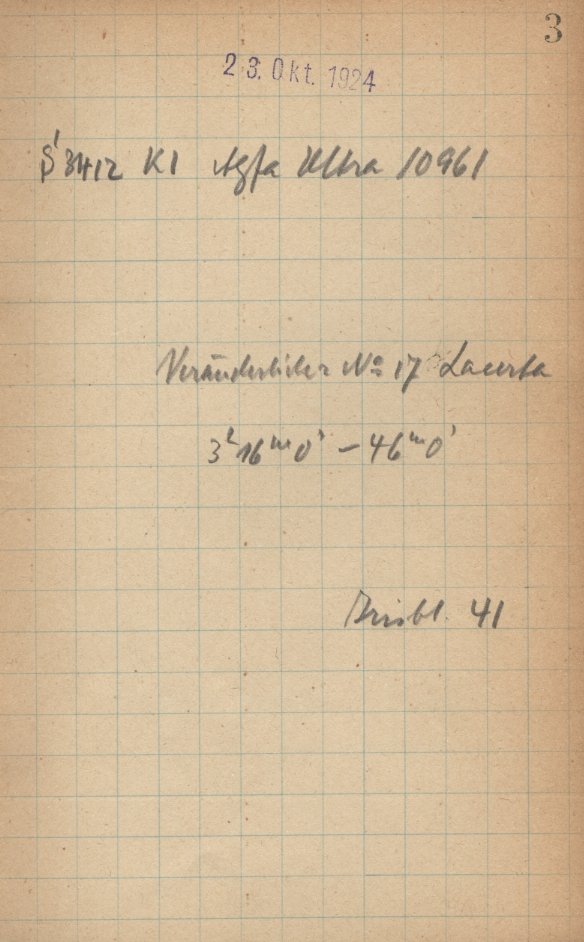 3
23. Okt. 1924
S 3412 K1 Agfa Ultra 10961
Veränderlicher No 17 Lacerta
3h 16m 0s – 46m 0s
Irisbl. 41